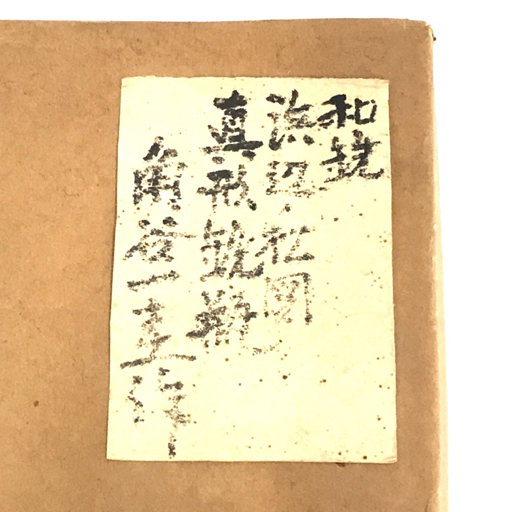 和銑
浜辺松図
真形銑瓶
角谷一圭作